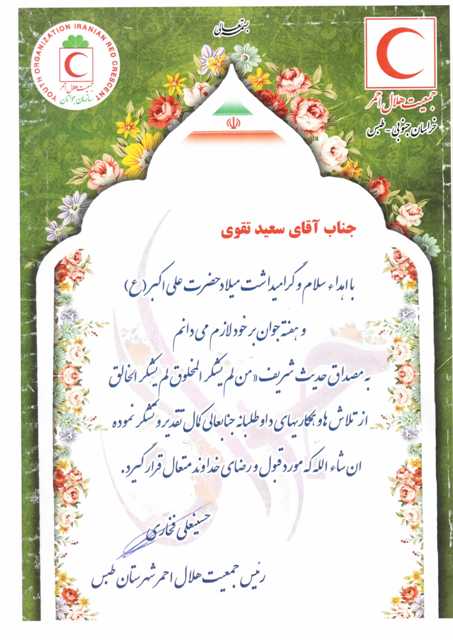 بسمه تعالی
YOUTH ORGANIZATION IRANIAN RED CRESCENT
جمعیت هلال احمر
سازمان جوانان
جمعیت هلال احمر
خراسان جنوبی - طبس
جناب آقای سعید تقوی
با اهداء سلام و گرامیداشت میلاد حضرت علی اکبر (ع)
و هفته جوان بر خود لازم می دانم
به مصداق حدیث شریف «من لم یشکر المخلوق لم یشکر الخالق
از تلاش ها و همکاریهای داوطلبانه جنابعالی کمال تقدیر و تشکر نموده
ان شاء الله که مورد قبول و رضای خداوند متعال قرار گیرد.
حسینعلی فخاری
رئیس جمعیت هلال احمر شهرستان طبس